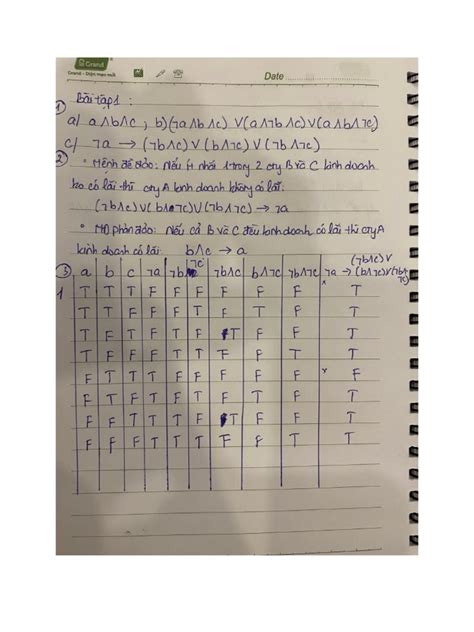 Grand
Grand - Diện mạo mới
Date
Bài tập 1 :
1
a/ a∧b∧c ; b)(¬a∧b∧c) ∨(a∧¬b∧c)∨(a∧b∧¬c)
c/ ¬a → (¬b∧c) ∨ (b∧¬c) ∨ (¬b∧¬c)
2 • Mệnh đề đảo: Nếu ít nhất 1 trong 2 cty B và C kinh doanh
ko có lãi thì cty A kinh doanh không có lãi.
(¬b∧c)∨(b∧¬c)∨(¬b∧¬c) → ¬a
• MĐ phản đảo: Nếu cả B và C đều kinh doanh có lãi thì cty A
kinh doanh có lãi b∧c → a
3 a b c ¬a ¬b ¬c ¬b∧c b∧¬c ¬b∧¬c ¬a → (¬b∧c)∨(b∧¬c)∨(¬b∧¬c)
1 T T T F F F F F F T
T T F F F T F T F T
T F T F T F T F F T
T F F F T T F F T T
F T T T F F F F F F
F T F T F T F T F T
F F T T T F T F F T
F F F T T T F F T T